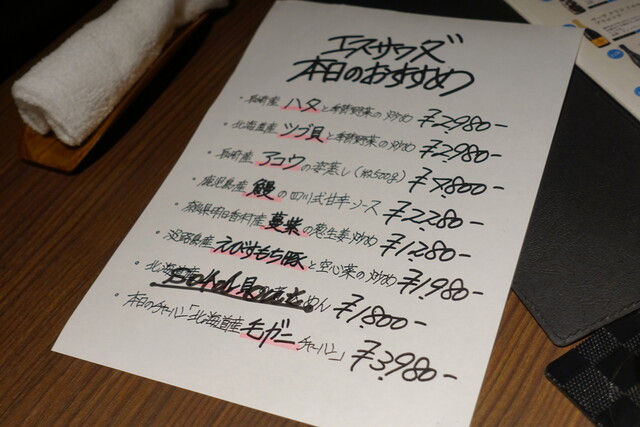 エスサワダ
本日のおすすめ
・長崎産 ハタと季節野菜の炒め ¥2,980-
・北海道産 ツブ貝と季節野菜の炒め ¥2,980-
・長崎産 アコウの姿蒸し(約500g) ¥7,800-
・鹿児島産 鰻の四川式甘辛ソース ¥2,280-
・奈良県明日香村産 蔓紫の葱生姜炒め ¥1,280-
・淡路島産 えびすもち豚と空心菜の炒め ¥1,980-
・北海道 めん ¥1,800-
・本日のチャーハン「北海道産 毛ガニチャーハン」 ¥3,980-